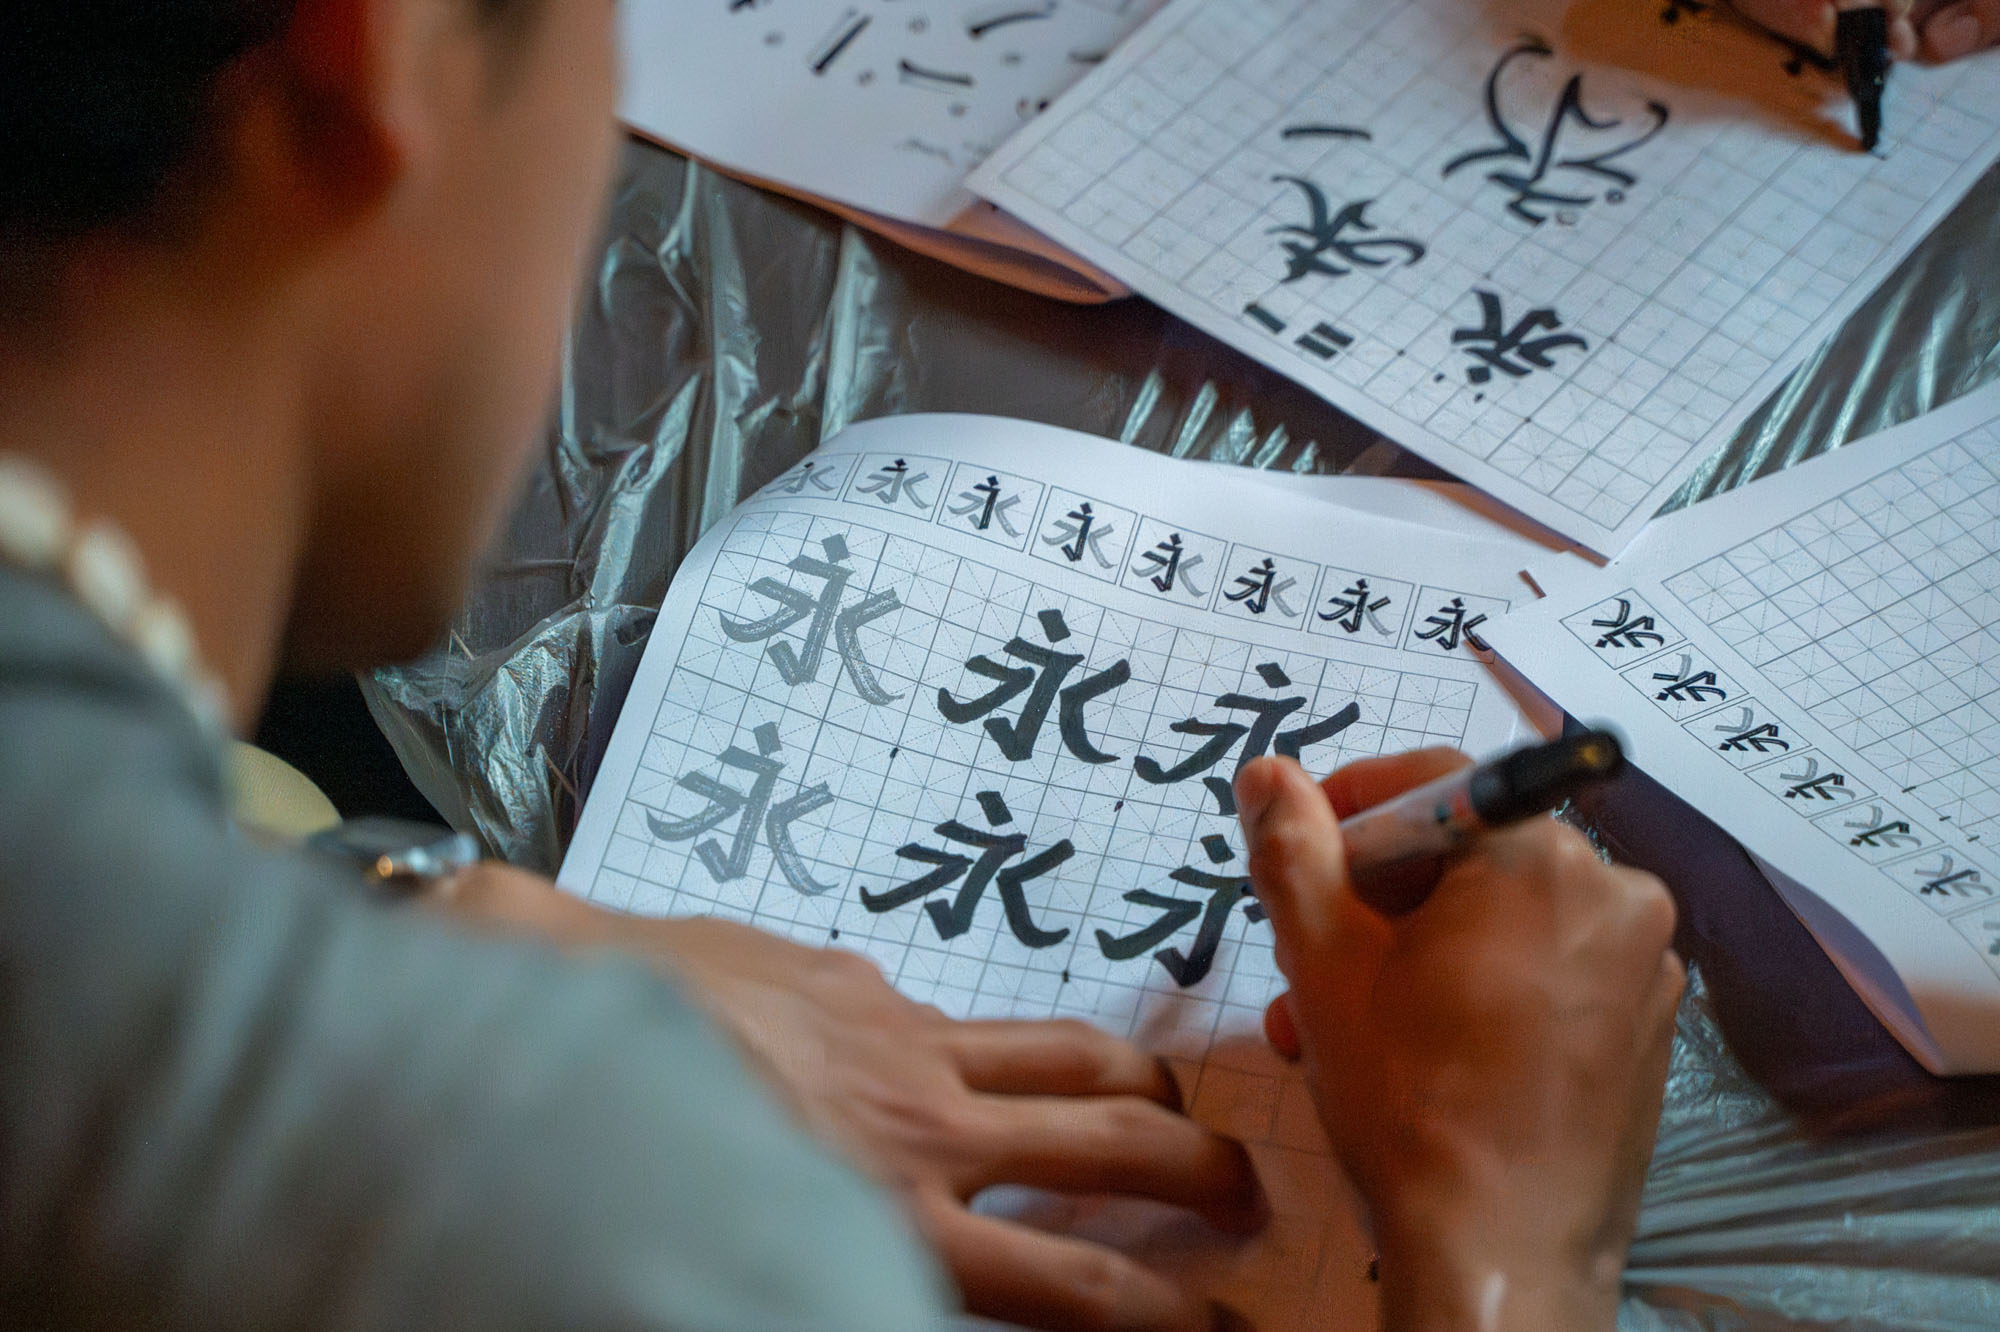 永永永永永永永永
永永永
永永永
永
永
永
永永永永永永